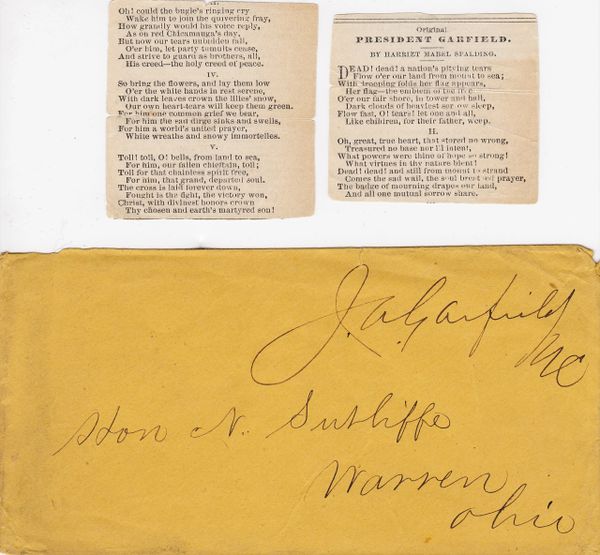 Original
PRESIDENT GARFIELD.
BY HARRIET MABEL SPALDING.
DEAD! dead! a nation's pitying tears
Flow o'er our land from mount to sea;
With drooping folds her flag appears,
Her flag—the emblem of the
O'er our fair shore, in tower and hall,
Dark clouds of heaviest sorrow sleep,
Flow fast, O! tears! let one and all,
Like children, for their father, weep.
II.
Oh, great, true heart, that stored no wrong,
Treasured no base nor ill intent,
What powers were thine of hope so strong!
What virtues in thy nature blent!
Dead! dead! and still from mount to strand
Comes the sad wail, the soul breathed prayer,
The badge of mourning drapes our land,
And all one mutual sorrow share.
Oh! could the bugle's ringing cry
Wake him to join the quivering fray,
How grandly would his voice reply,
As on red Chicamauga's day,
But now our tears unbidden fall,
O'er him, let party tumults cease,
And strive to guard as brothers, all,
His creed—the holy creed of peace.
IV.
So bring the flowers, and lay them low
O'er the white hands in rest serene,
With dark leaves crown the lilies' snow,
Our own heart-tears will keep them green.
For him one common grief we bear,
For him the sad dirge sinks and swells,
For him a world's united prayer,
White wreaths and snowy immortelles.
V.
Toll! toll, O! bells, from land to sea,
For him, our fallen chieftain, toll;
Toll for that chainless spirit free,
For him, that grand, departed soul.
The cross is laid forever down,
Fought is the fight, the victory won,
Christ, with divinest honors crown
Thy chosen and earth's martyred son!
J. A. Garfield
MC
Hon N. Sutliffe
Warren
Ohio